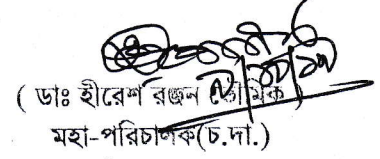 ( ডাঃ হীরেশ রঞ্জন ভৌমিক )
মহা-পরিচালক(চ.দা.)